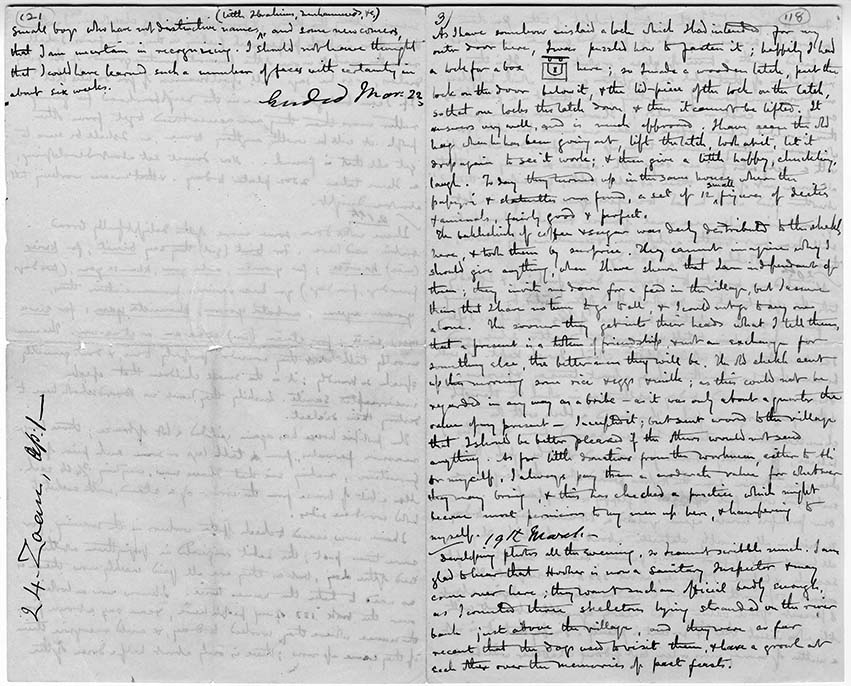 (21)
(with Ibrahim, Muhammed, &c)
small boys who have not distinctive names, and some new comers,
that I am uncertain in recognizing. I should not have thought
that I could have learned such a number of faces with certainty in
about six weeks.
Ended Mar. 23
24. Zoan, Ap. 1
3)
118
As I have somehow mislaid a lock which I had intended for my
outer door here, I was puzzled how to fasten it; happily I had
a lock for a box here; so I made a wooden latch, put the
lock on the door below it, & the lid-piece of the lock on the latch,
so that one locks the latch down & then it cannot be lifted. It
answers very well, and is much approved; I have seen the old
when he has been going out, lift the latch, look at it, let it
drop again to see it work; & then give a little happy, chuckling,
laugh. To day they turned up in the same house, where the
papyri & statuettes was found, a set of 12 small figures of deities
& animals, fairly good & perfect.
The of coffee & sugar was duly distributed to the sheikhs
here, & took them by surprise. They cannot imagine why I
should give anything, when I have shewn that I am independent of
them: they invite me down for a feed in the village, but I assure
them that I have no time to go to all, & I could not go to any one
alone. The sooner they get into their heads what I tell them,
that a present is a token of friendship & not an exchange for
something else, the better armed they will be. The old sheikh sent
up this morning some rice & eggs & milk; as this could not be
regarded in any way as a bribe – as it was only about a quarter the
value of my present – I accepted it; but sent word to the village
that I should be better pleased if the others would not send
anything. As for little donations from the workmen, either to Ali
or myself, I always pay them a moderate value for whatever
they may bring, & this has checked a practice which might
become most pernicious to my men up here, & hampering to
myself. 19th March. –
Developing photos all the evening, so I cannot scribble much. I am
glad to hear that Hooker is now a Sanitary Inspector & may
come over here; they want such an official badly enough,
as I counted three skeletons lying stranded on the river
bank just above the village, and they were so far
recent that the dogs used to visit them, & have a growl at
each other over the memories of past feasts.